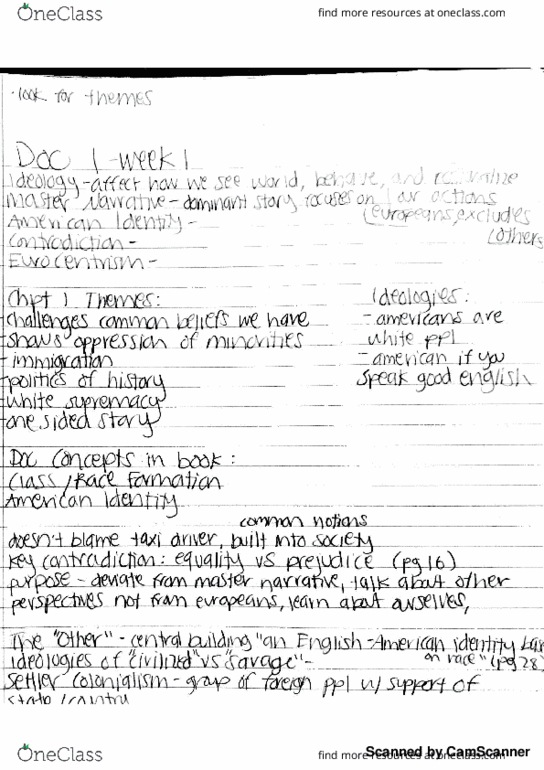 OneClass
find more resources at oneclass.com
· look for themes
Doc 1 - week 1
Ideology - affect how we see world, behave, and rationalize
our actions
Master Narrative - dominant story focuses on
(europeans, excludes
(others
American Identity -
Contradiction -
Eurocentrism -
Chpt 1 Themes:
challenges common beliefs we have
shows oppression of minorities
- immigration
politics of history
white supremacy
one sided story
Ideologies:
- americans are
white ppl
- american if you
speak good english
Doc Concepts in book:
Class / Race Formation
American Identity
common notions
doesn't blame taxi driver, built into society
key contradiction: equality vs prejudice (pg 16)
purpose - deviate from master narrative, talk about other
perspectives not from europeans, learn about ourselves,
The "Other" - central building "an English-American identity
on race" (pg 28)
ideologies of "civilized" vs "savage" -
Settler Colonialism - group of foreign ppl w/ support of
state / country
OneClass
find more resources at oneclass.com
Scanned by CamScanner